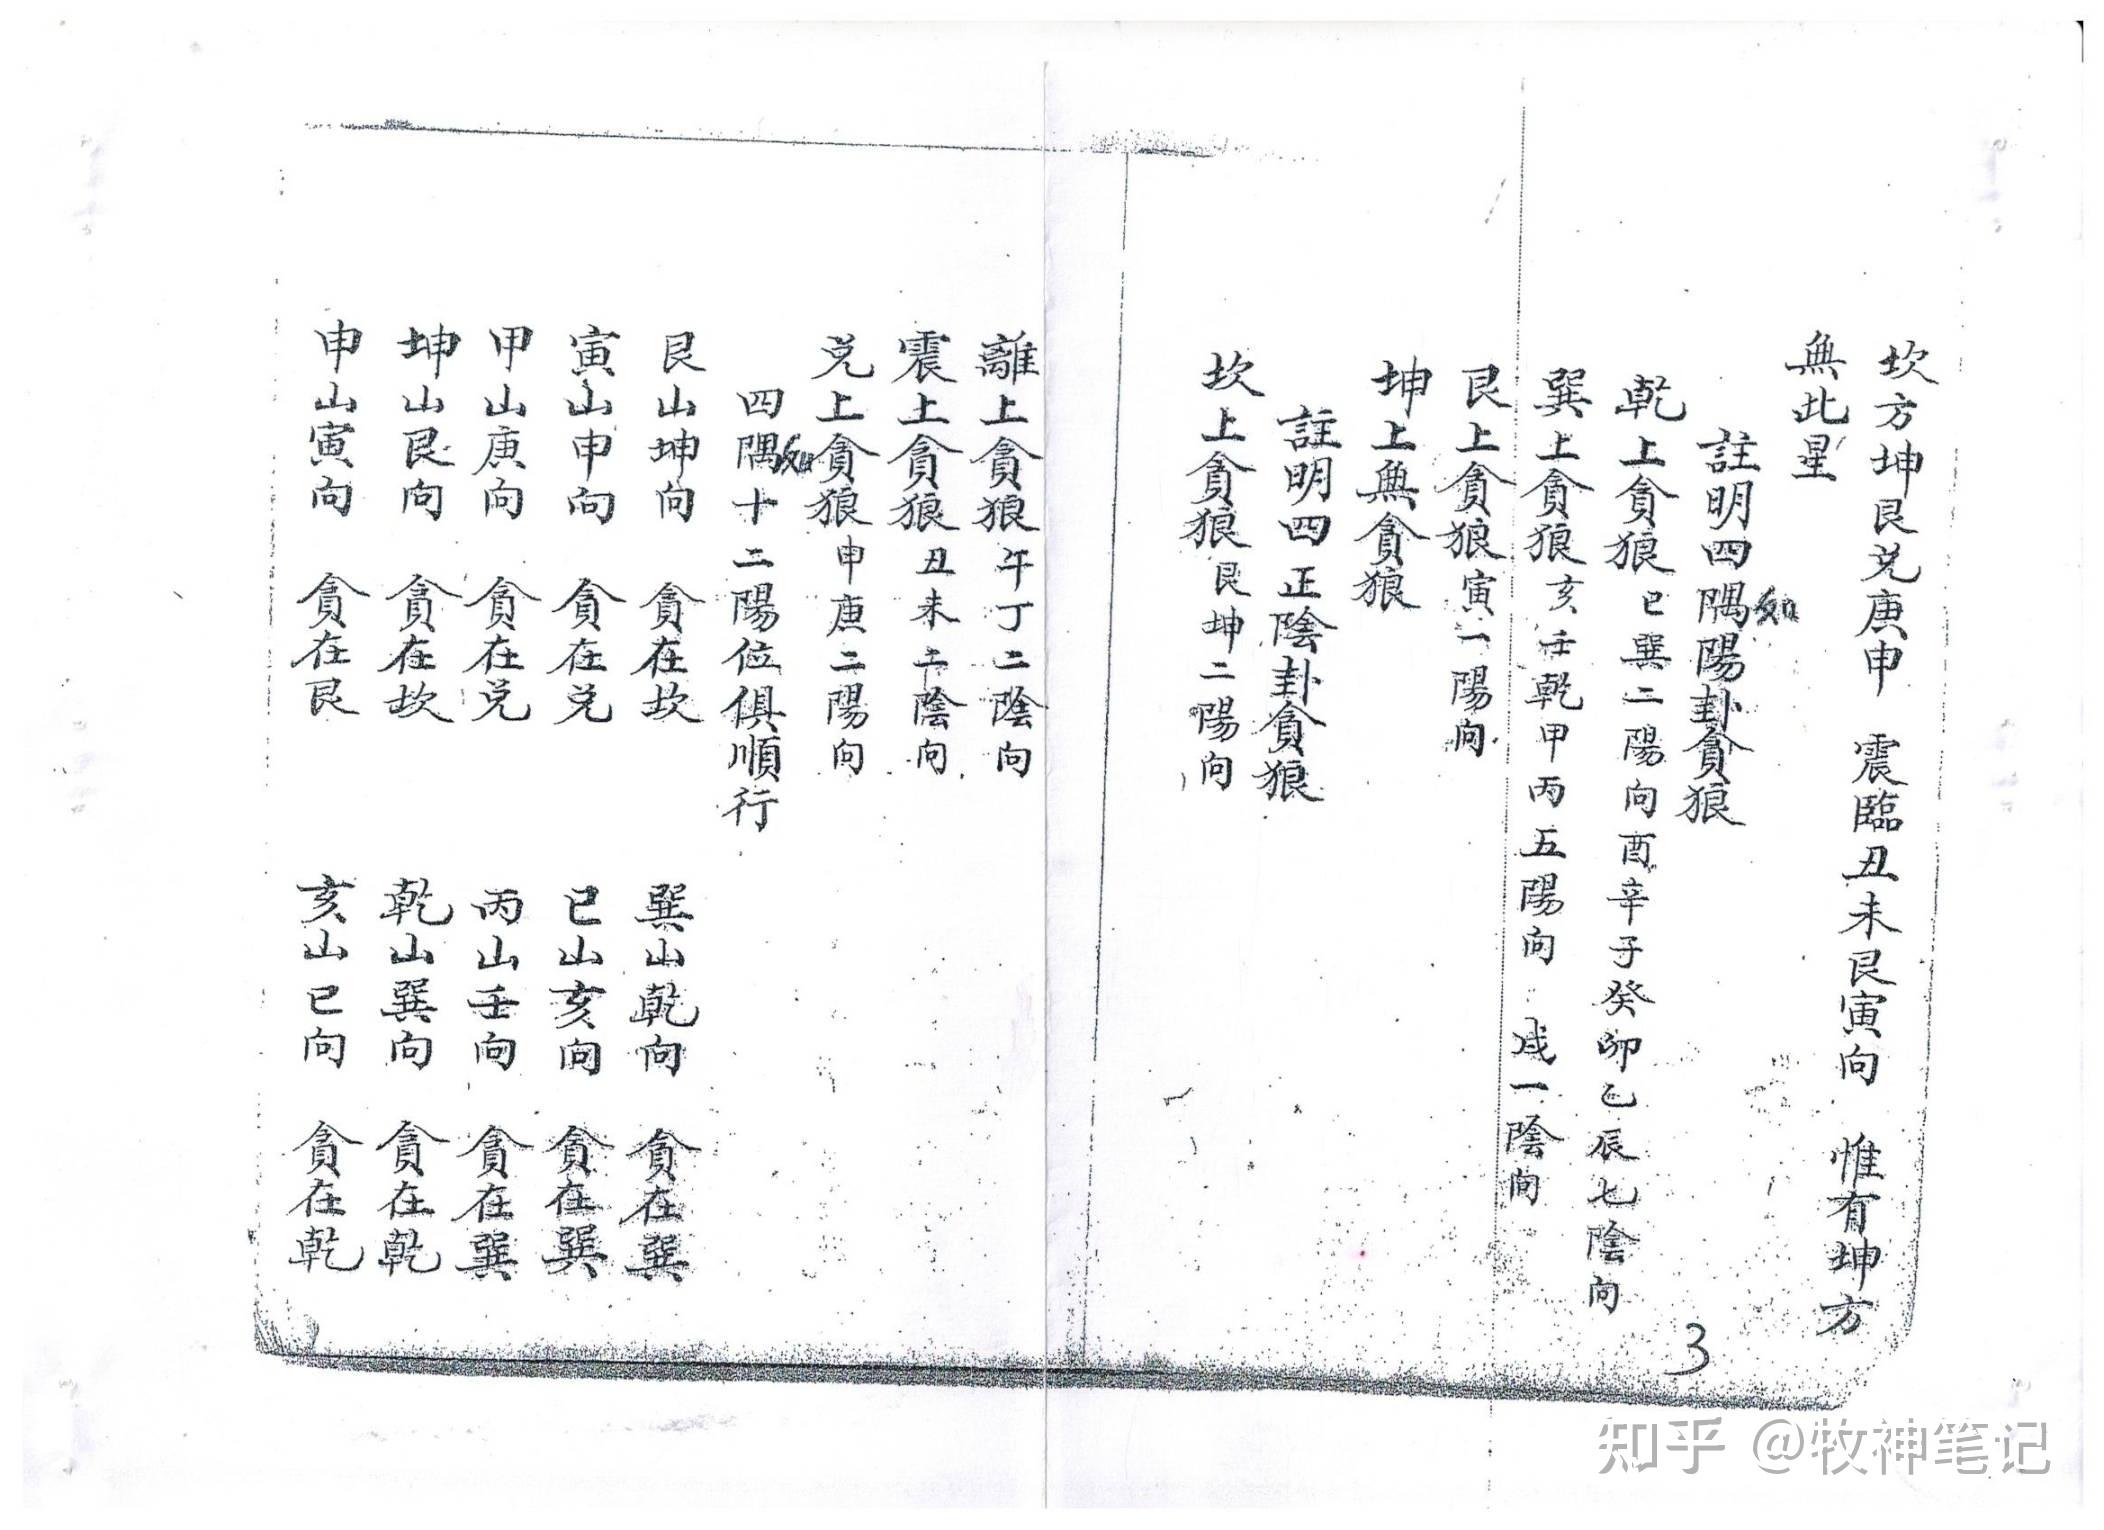 坎方坤艮兑庚申　震臨丑未艮寅向　惟有坤方
無此星
註明四隅陽卦貪狼
如
乾上貪狼已巽二陽向酉辛子癸卯乙辰七陰向
巽上貪狼亥壬乾甲丙五陽向　戌一陰向
艮上貪狼寅一陽向
坤上無貪狼
註明四正陰卦貪狼
坎上貪狼艮坤二陽向
離上貪狼午丁二陰向
震上貪狼丑未二陰向
兑上貪狼申庚二陽向
四隅十二陽位俱順行
如
艮山坤向　貪在坎　巽山乾向　貪在巽
寅山申向　貪在兑　已山亥向　貪在巽
甲山庚向　貪在兑　丙山壬向　貪在巽
坤山艮向　貪在坎　乾山巽向　貪在乾
申山寅向　貪在艮　亥山已向　貪在乾
3
知乎 @牧神笔记